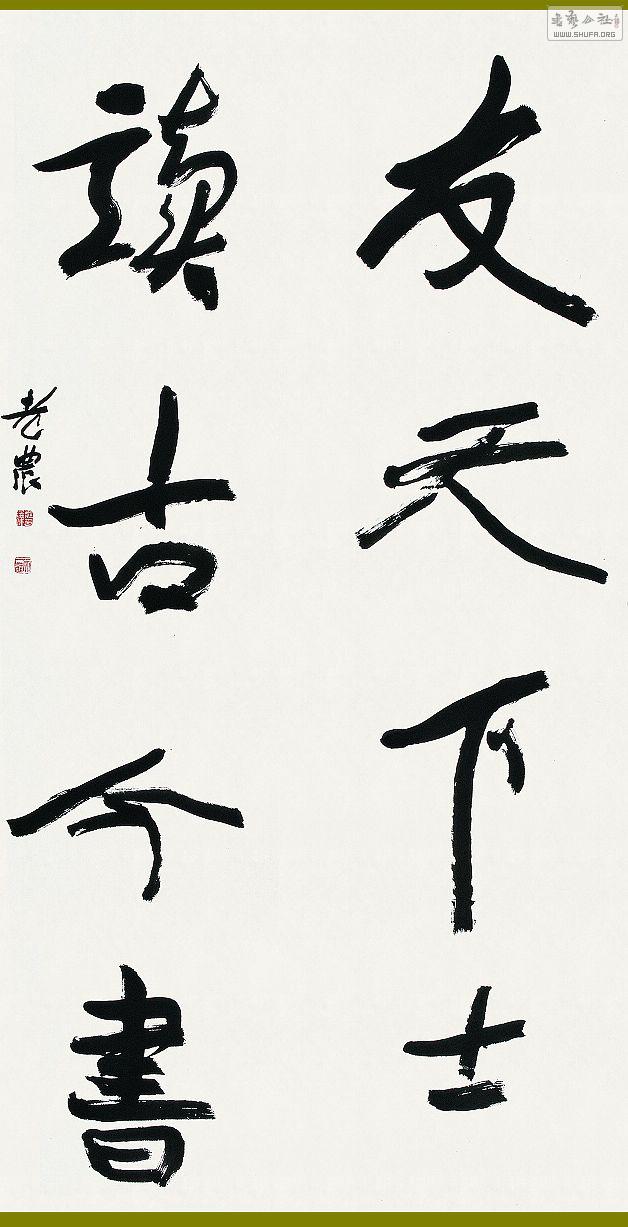 友天下士
讀古今書
老農
書藝公社
WWW.SHUFA.ORG